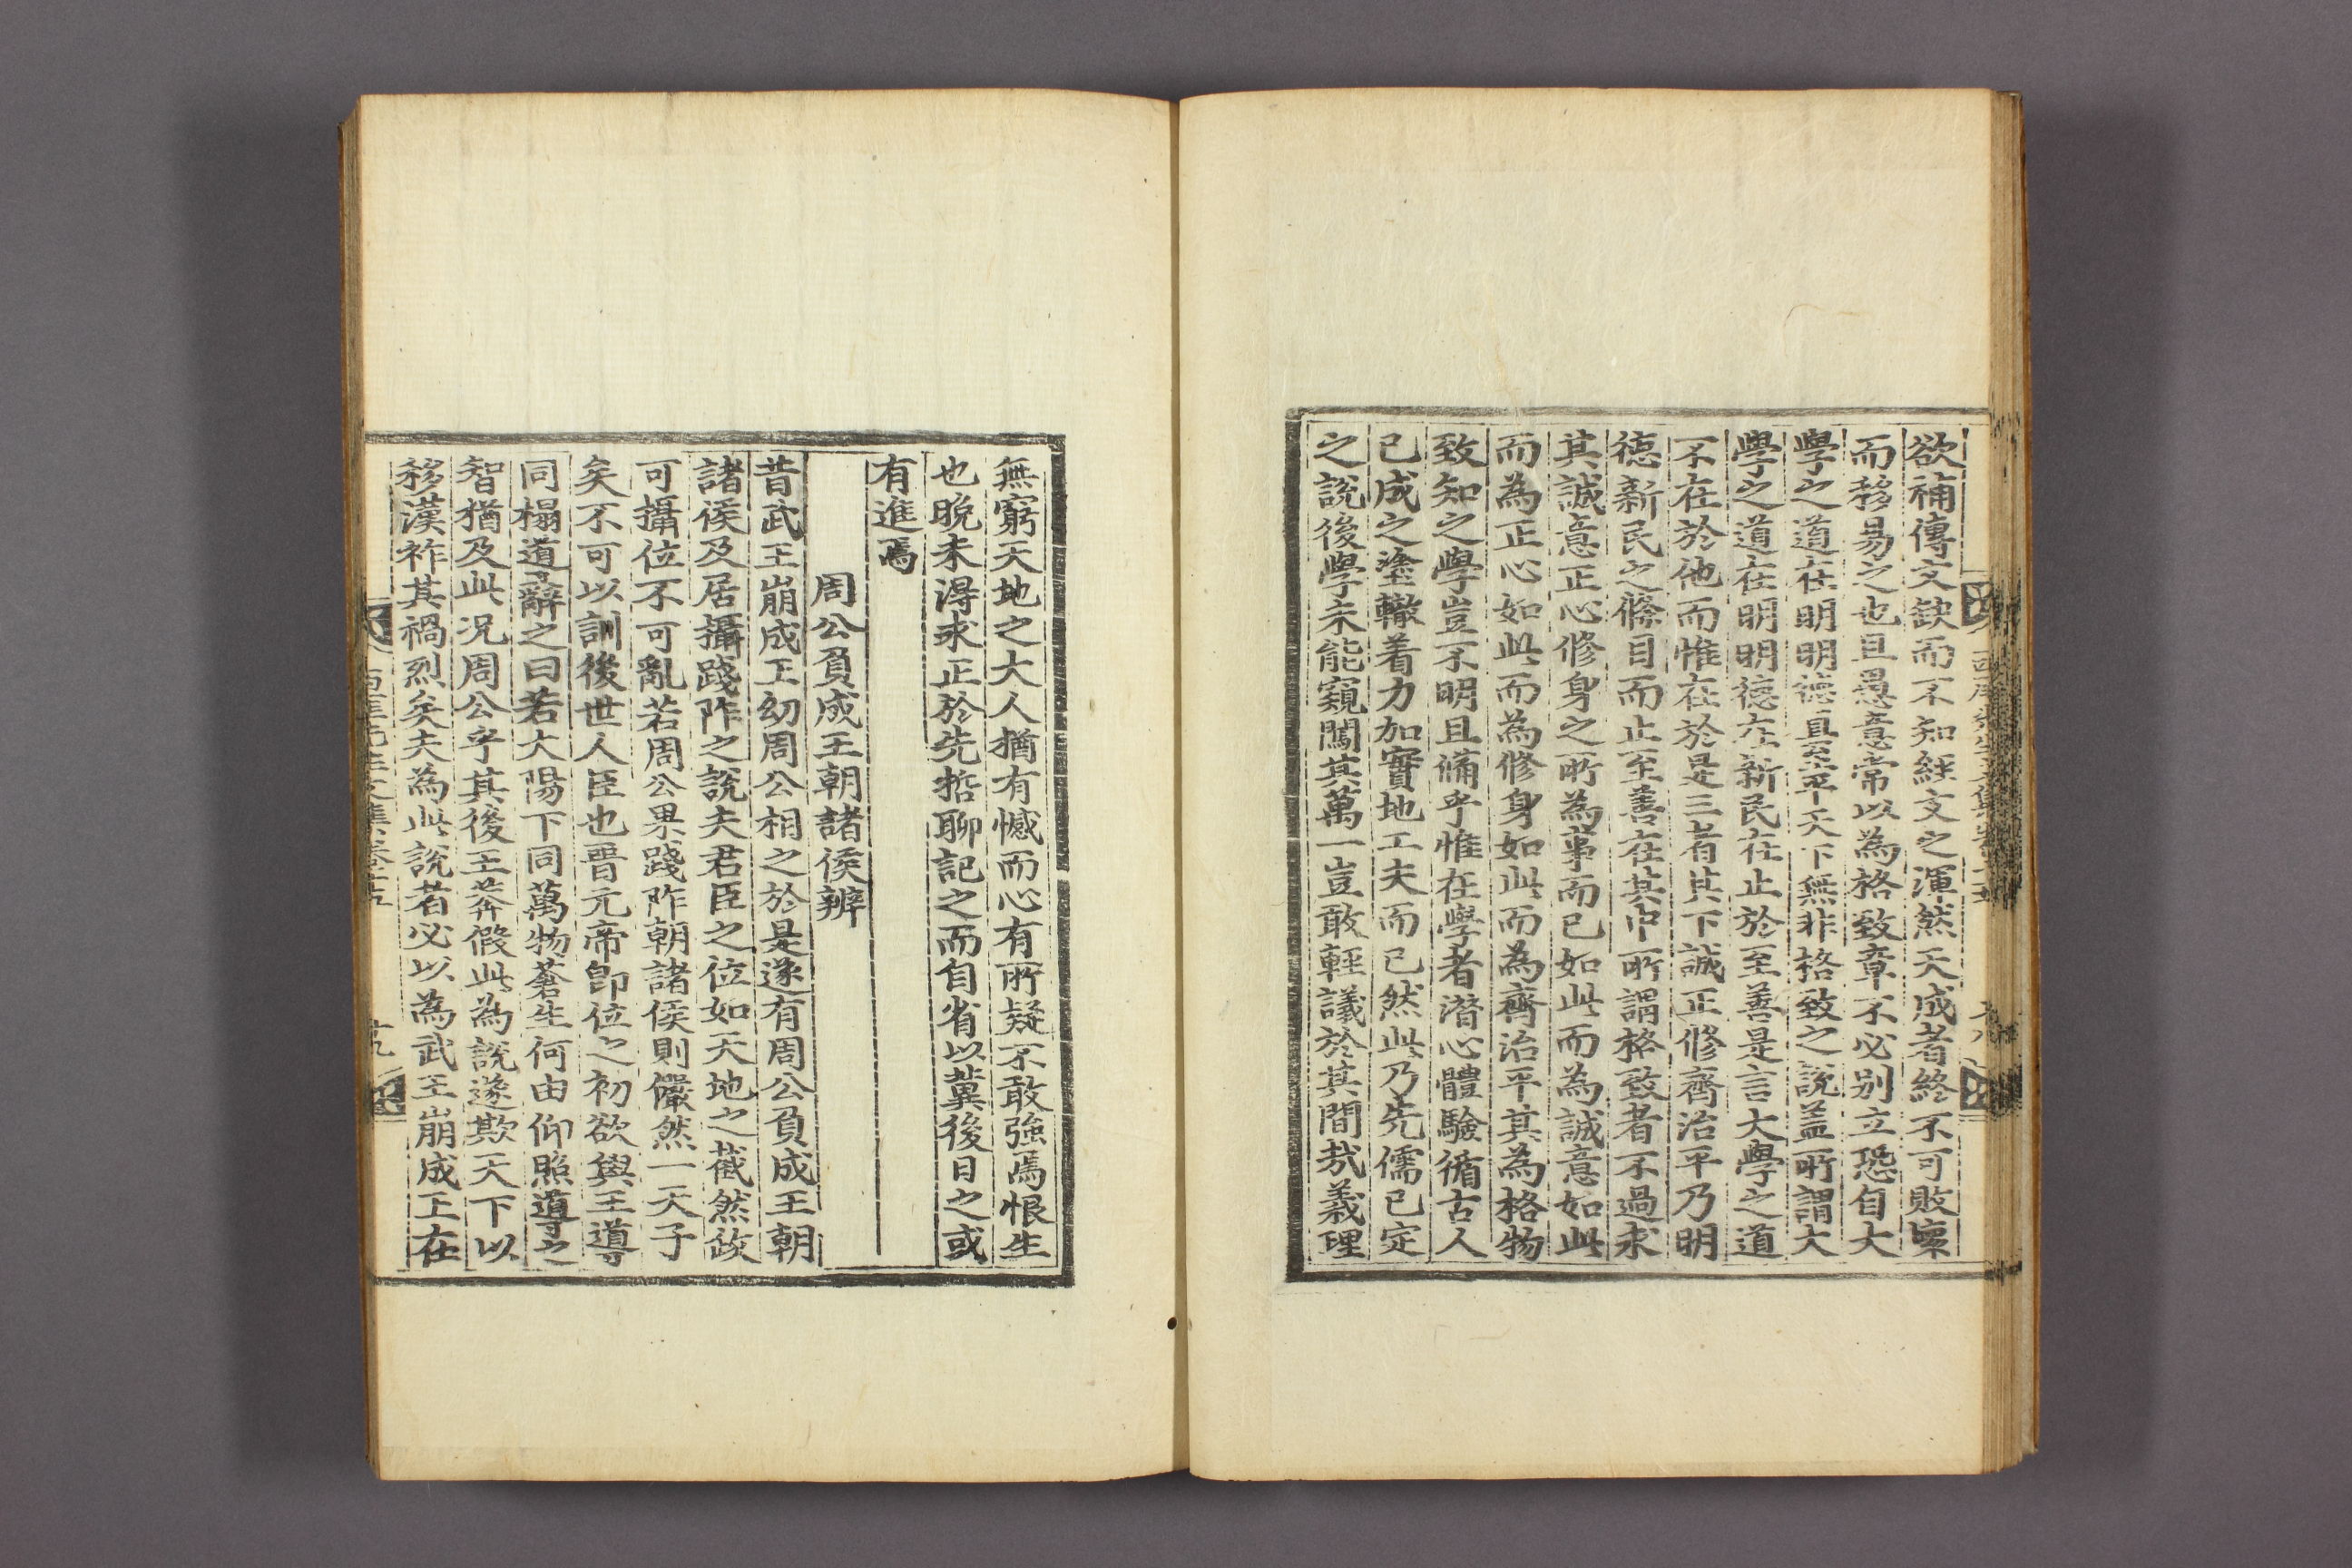 欲補傳文缺而不知經文之渾然天成者終不可敗壞
而移易之也且愚意常以為格致章不必別立恐自大
學之道在明明德直至平天下無非格致之說盖所謂大
學之道在明明德在新民在止於至善是言大學之道
不在於他而惟在於是三者其下誠正修齊治平乃明
德新民之條目而止至善在其中所謂格致者不過求
其誠意正心修身之所為事而已如此而為誠意如此
而為正心如此而為修身如此而為齊治平其為格物
致知之學豈不明且備乎惟在學者潛心體驗循古人
已成之塗轍着力加實地工夫而已然此乃先儒已定
之說後學未能窺闖其萬一豈敢輕議於其間哉義理
無窮天地之大人猶有憾而心有所疑不敢強焉恨生
也晚未得求正於先哲聊記之而自省以冀後日之或
有進焉
周公負成王朝諸侯辨
昔武王崩成王幼周公相之於是遂有周公負成王朝
諸侯及居攝踐阼之說夫君臣之位如天地之截然政
可攝位不可亂若周公果踐阼朝諸侯則儼然一天子
矣不可以訓後世人臣也晋元帝卽位之初欲與王導
同榻導辭之曰若太陽下同萬物蒼生何由仰照導之
智猶及此况周公乎其後王莽假此為說遂欺天下以
移漢祚其禍烈矣夫為此說者必以為武王崩成王在
先生文集卷之五
十九